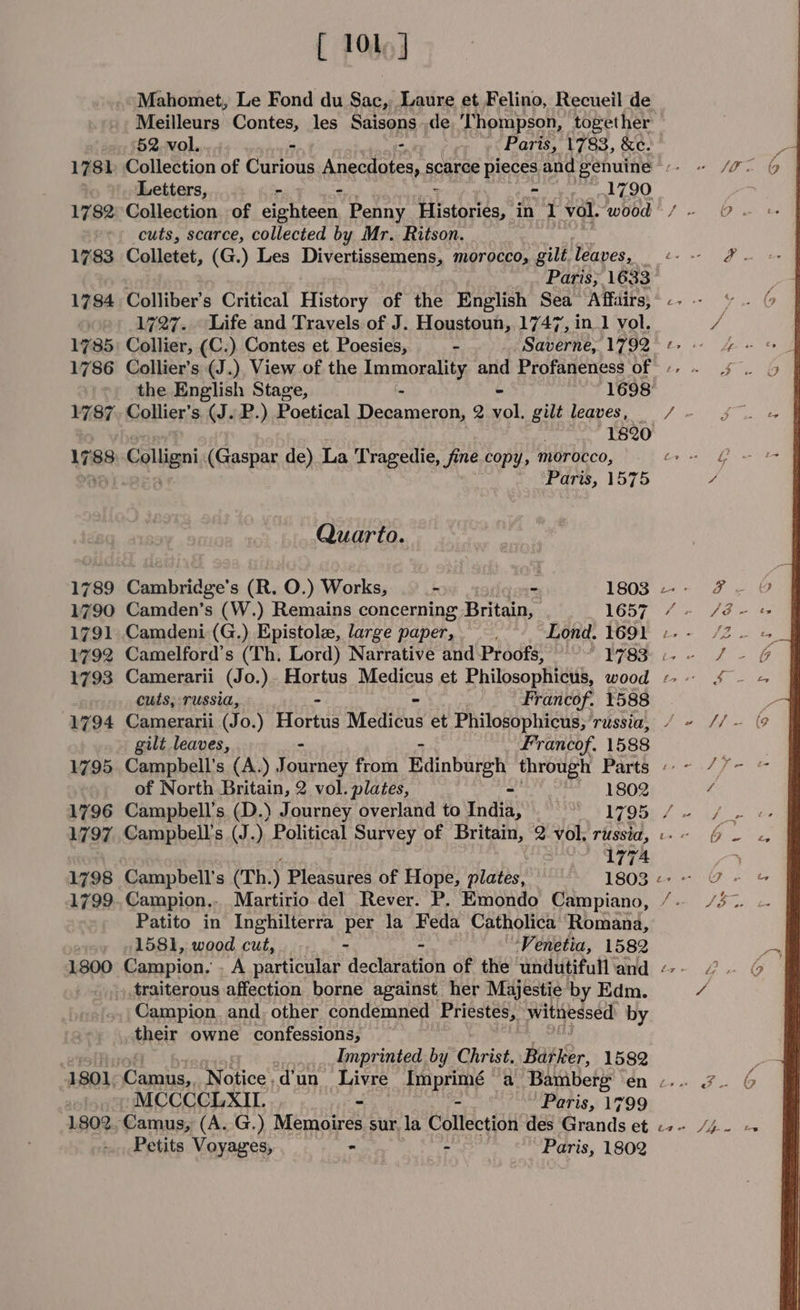 [ 101 ]
Mahomet, Le Fond du Sac, Laure et Felino, Recueil de
Meilleurs Contes, les Saisons de Thompson, together
52 vol. - - Paris, 1783, &c.
1781 Collection of Curious Anecdotes, scarce pieces and genuine
Letters, - - - - 1790
1782 Collection of eighteen Penny Histories, in 1 vol. wood
cuts, scarce, collected by Mr. Ritson.
1783 Colletet, (G.) Les Divertissemens, morocco, gilt leaves,
Paris, 1633
1784 Colliber's Critical History of the English Sea Affairs,
1727. Life and Travels of J. Houstoun, 1747, in 1 vol.
1785 Collier, (C.) Contes et Poesies, - Saverne, 1792
1786 Collier's (J.) View of the Immorality and Profaneness of
the English Stage, - - 1698
1787 Collier's (J. P.) Poetical Decameron, 2 vol. gilt leaves,
1820
1788 Colligni (Gaspar de) La Tragedie, fine copy, morocco,
Paris, 1575
Quarto.
1789 Cambridge's (R. O.) Works, - - 1803
1790 Camden's (W.) Remains concerning Britain, 1657
1791 Camdeni (G.) Epistolæ, large paper, Lond. 1691
1792 Camelford's (Th. Lord) Narrative and Proofs, 1783
1793 Camerarii (Jo.) Hortus Medicus et Philosophicus, wood
cuts, russia, - - Francof. 1588
1794 Camerarii (Jo.) Hortus Medicus et Philosophicus, russia,
gilt leaves, - - Francof. 1588
1795 Campbell's (A.) Journey from Edinburgh through Parts
of North Britain, 2 vol. plates, - 1802
1796 Campbell's (D.) Journey overland to India, 1795
1797 Campbell's (J.) Political Survey of Britain, 2 vol, russia,
1774
1798 Campbell's (Th.) Pleasures of Hope, plates, 1803
1799 Campion. Martirio del Rever. P. Emondo Campiano,
Patito in Inghilterra per la Feda Catholica Romana,
1581, wood cut, - - Venetia, 1582
1800 Campion. A particular declaration of the undutifull and
traiterous affection borne against her Majestie by Edm.
Campion and other condemned Priestes, witnessed by
their owne confessions,
Imprinted by Christ. Barker, 1582
1801 Camus, Notice d'un Livre Imprimé a Bamberg en
MCCCCLXII. - - Paris, 1799
1802 Camus, (A. G.) Memoires sur la Collection des Grands et
Petits Voyages, - - Paris, 1802